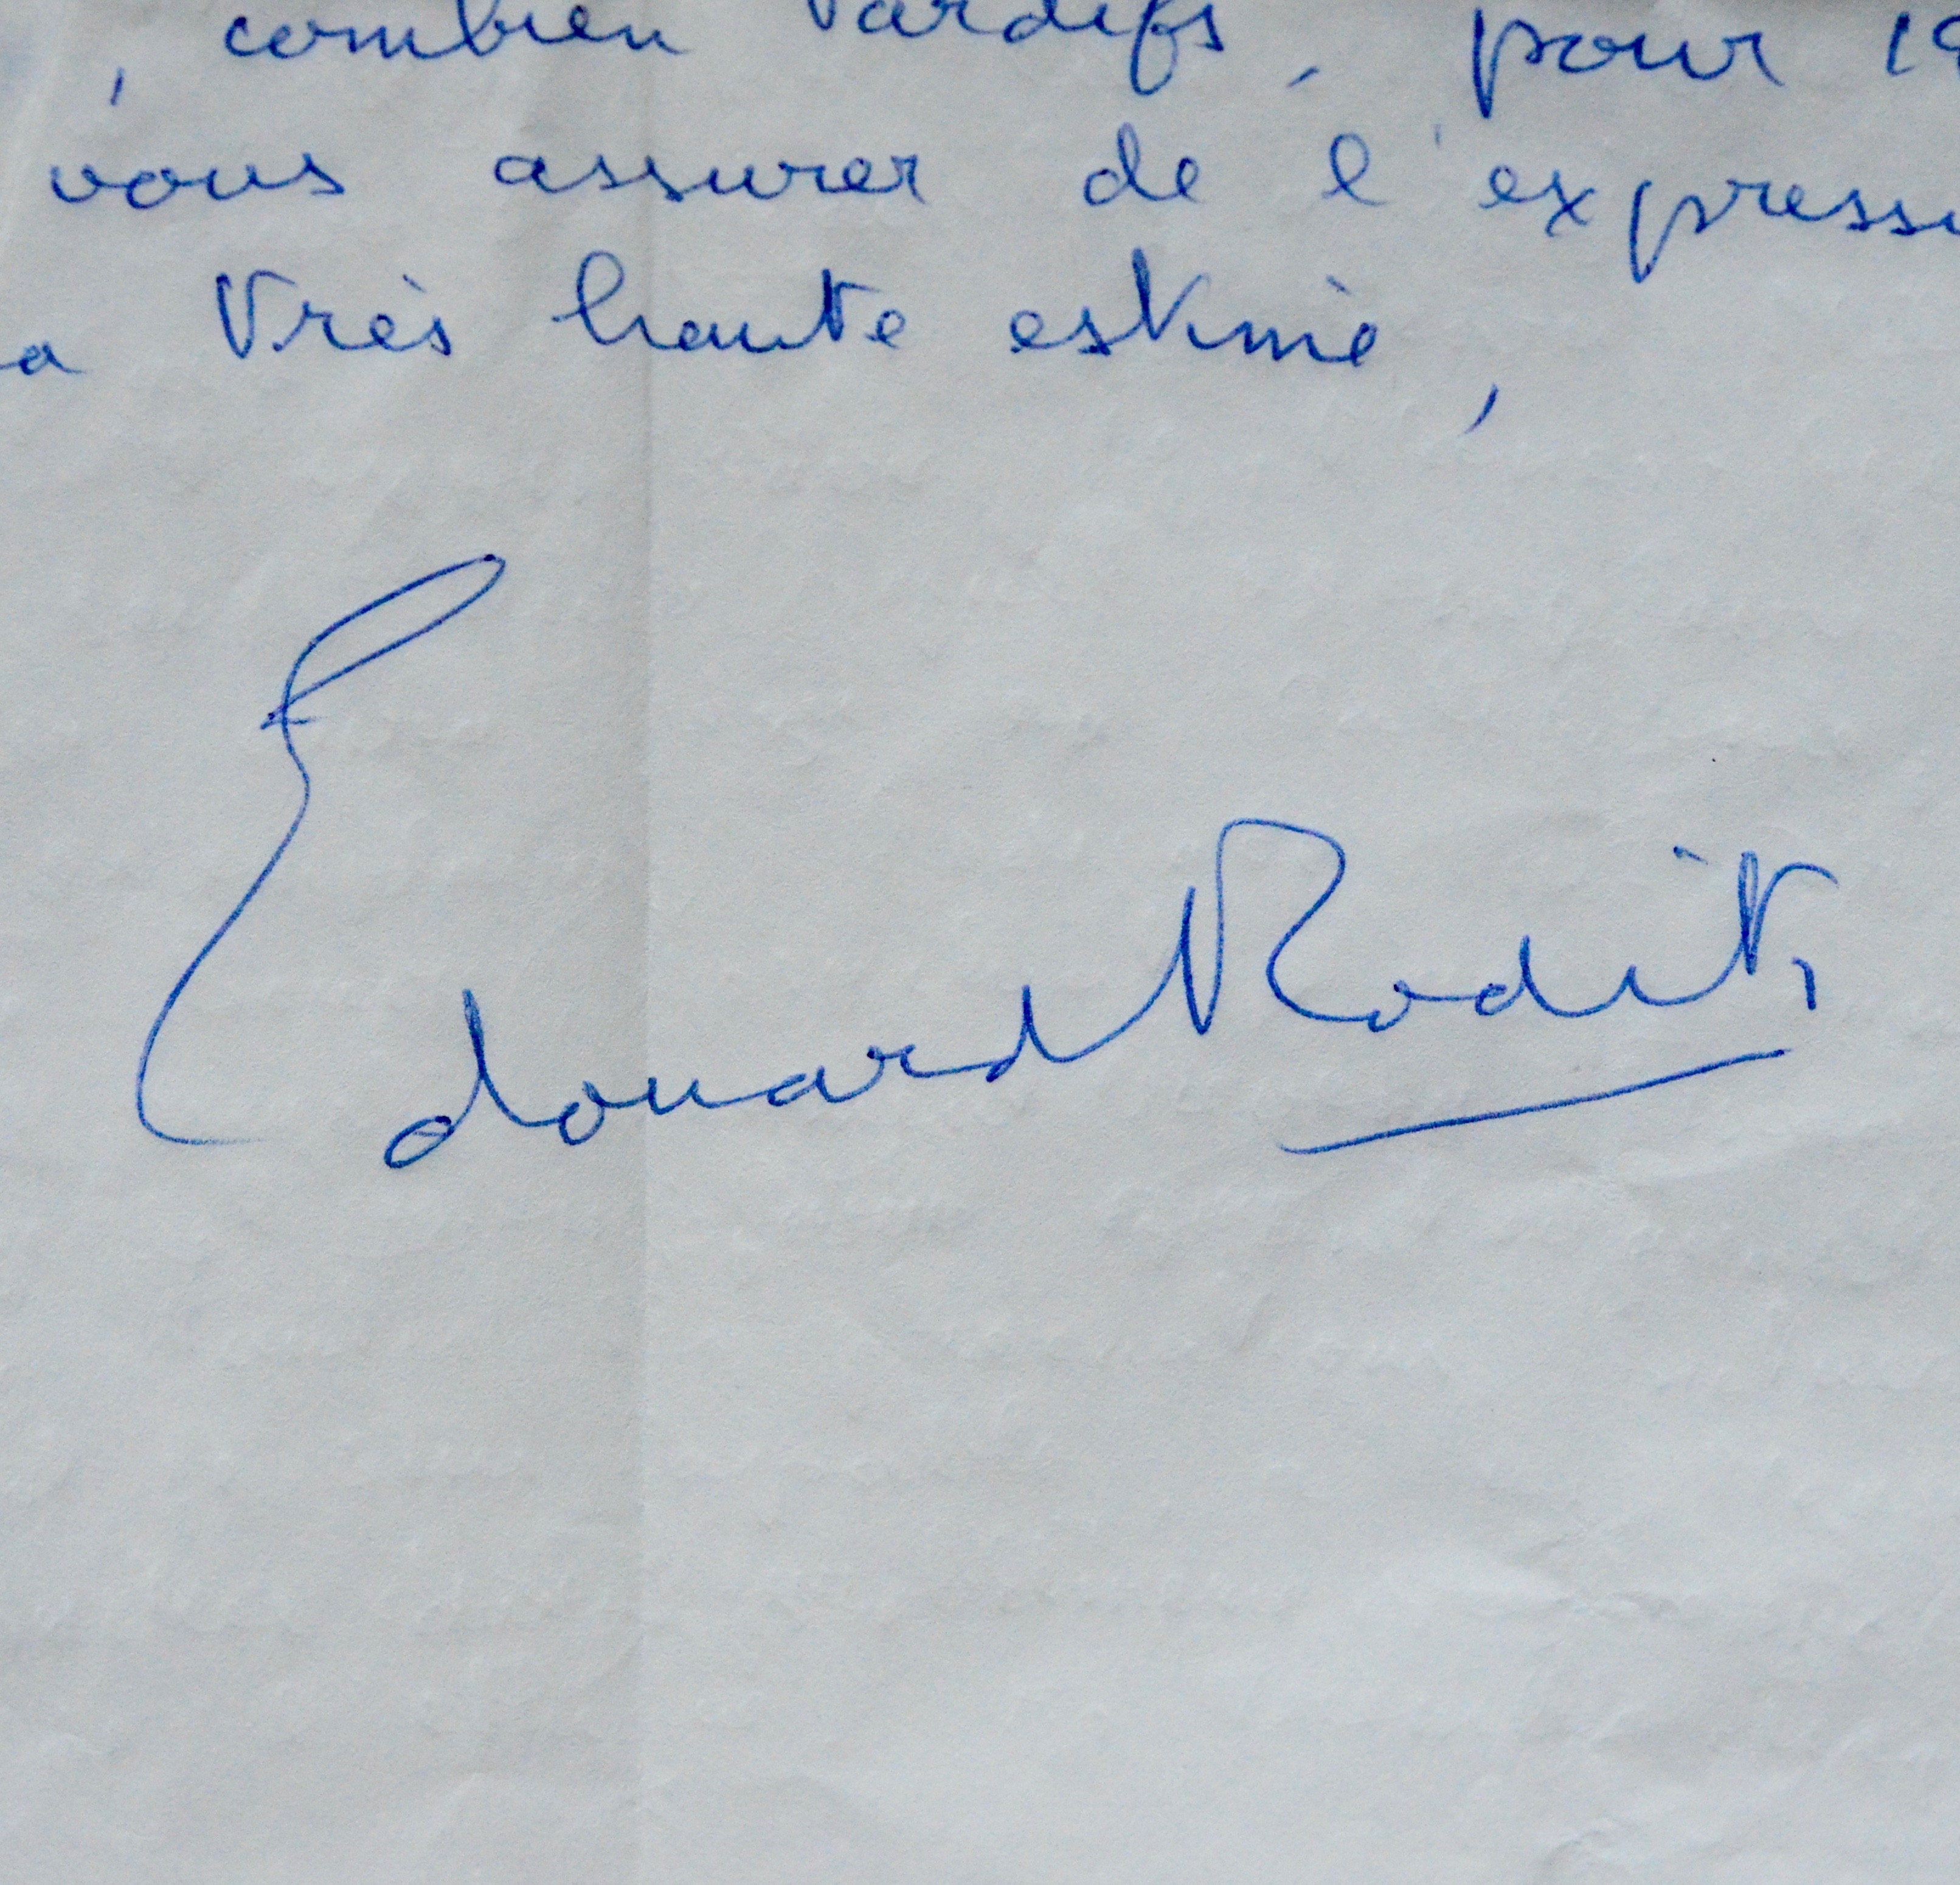 , combien tardifs, pour 19
vous assurer de l'expressi
a très haute estime,
Edouard Roditi